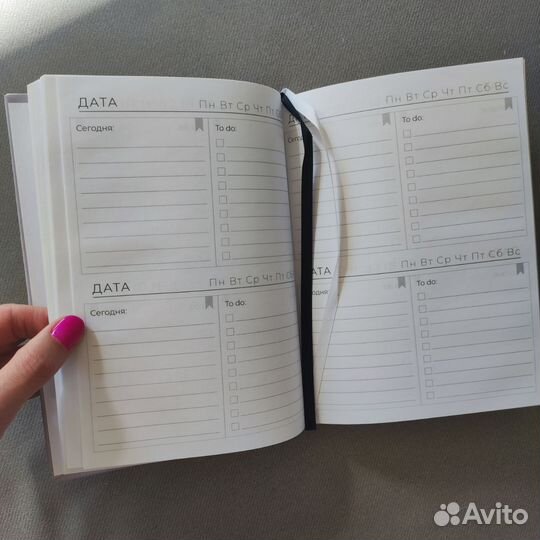 ДАТА
Пн Вт Ср Чт Пт Сб
Сегодня:
To do:
ДАТА
Пн Вт Ср Чт Пт Сб
Сегодня:
To do:
Пн Вт Ср Чт Пт Сб Вс
To do:
ДАТА
Пн Вт Ср Чт Пт Сб Вс
To do:
Avito